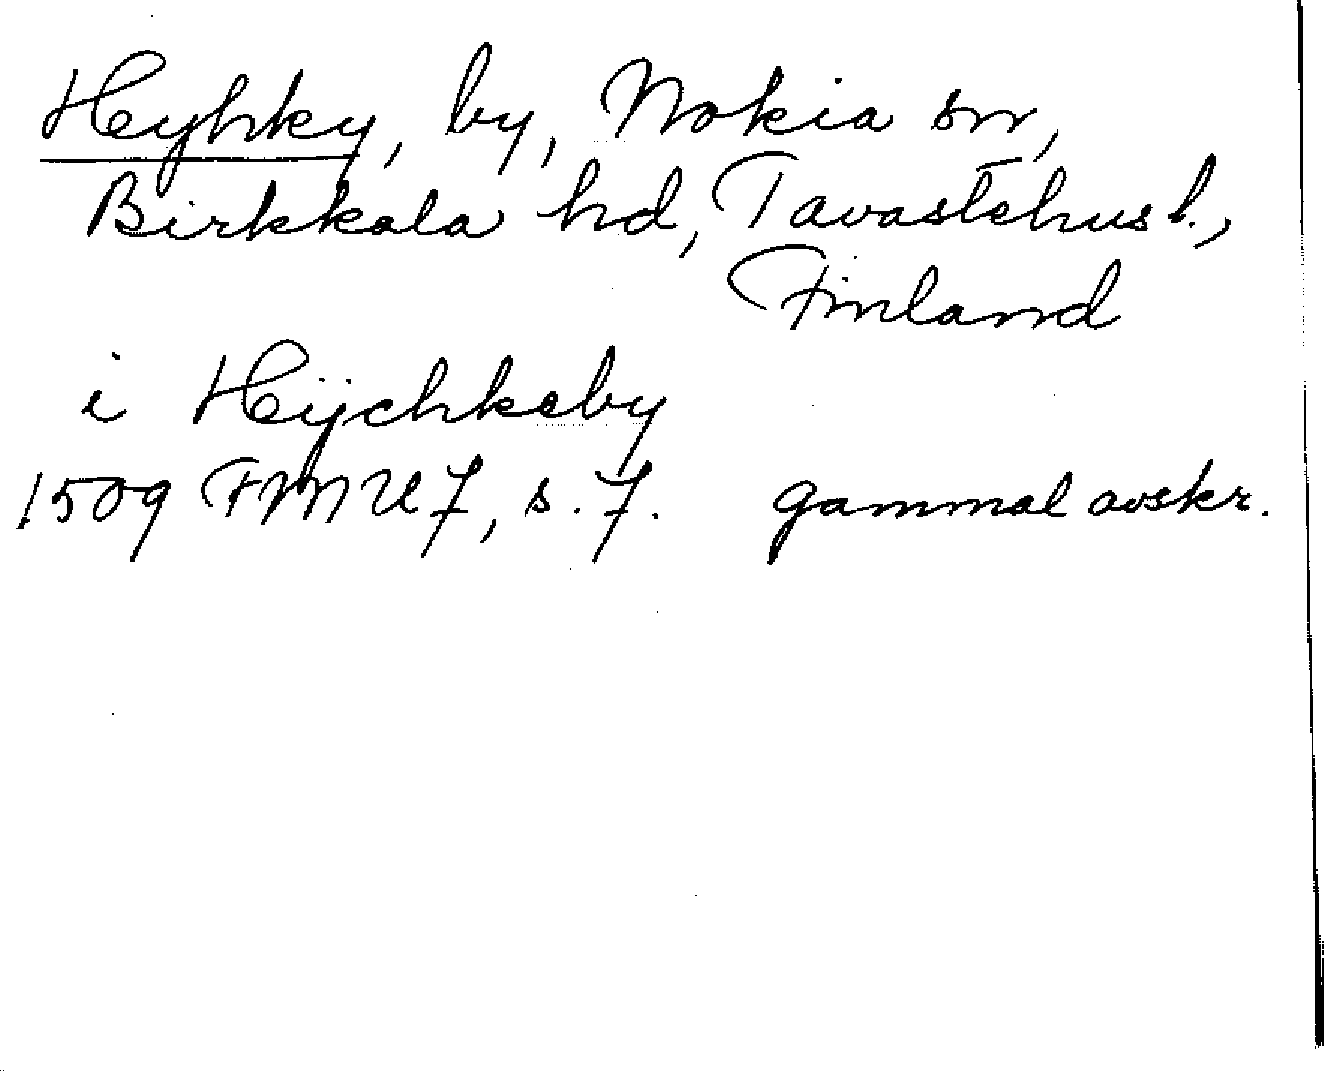 Heyhky, by, Nokia sn,
Birkkala hd, Tavastehus l.,
Finland
i Heijchkeby
1509 FMU 7, s. 7. gammal avskr.